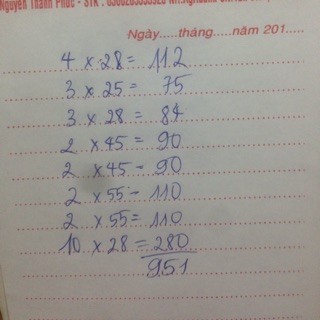 Nguyễn Thành Phúc - STK :
Ngày.....tháng.....năm 201....
4 x 28 = 112
3 x 25 = 75
3 x 28 = 84
2 x 45 = 90
2 x 45 = 90
2 x 55 = 110
2 x 55 = 110
10 x 28 = 280
951